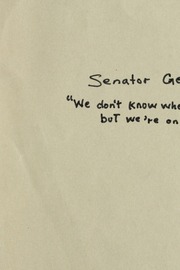 Senator Ge
"We don't know whe
but we're on